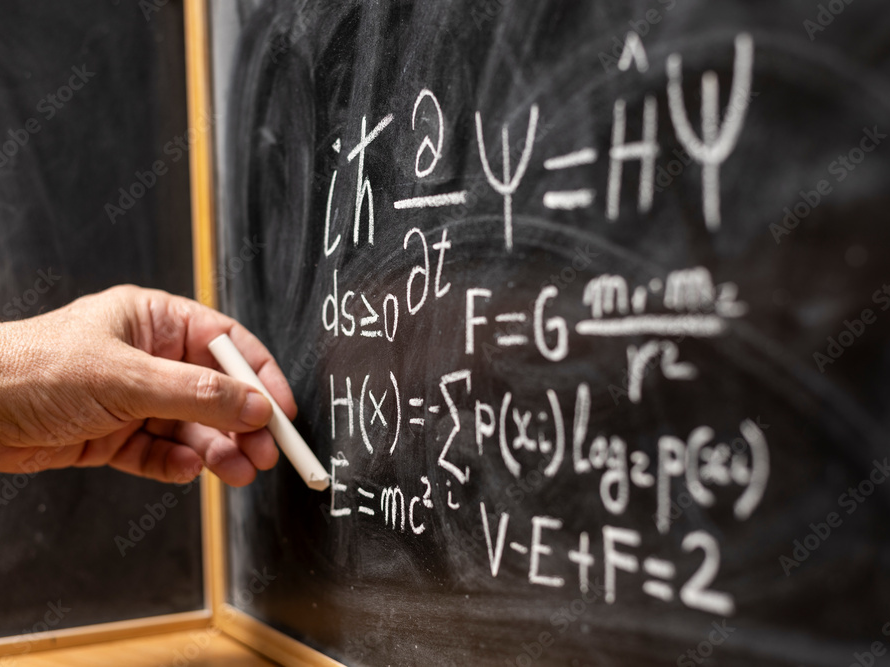 iħ ∂/∂t Ψ = ĤΨ
ds≥0
F = G m₁·m₂/r²
H(x) = -∑ᵢ p(xᵢ) log₂ p(xᵢ)
E = mc²
V-E+F=2
Adobe Stock